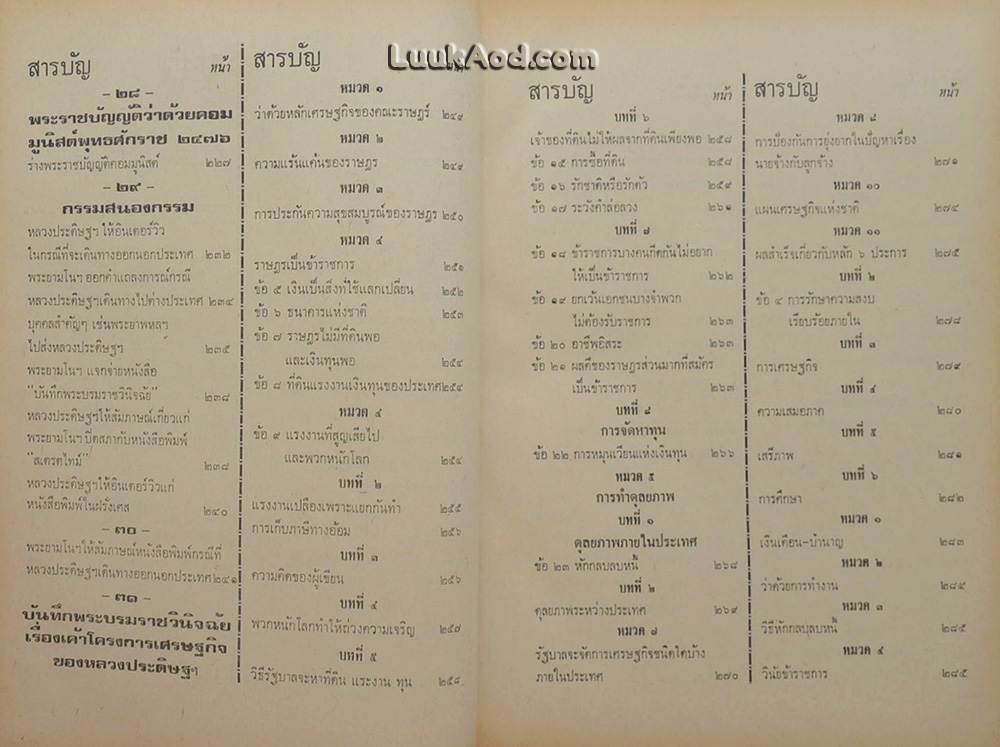 LuukAod.com
สารบัญ หน้า
- ๒๘ -
พระราชบัญญัติว่าด้วยคอม
มูนิสต์พุทธศักราช ๒๔๗๖
ร่างพระราชบัญญัติคอมมูนิสต์ ๒๒๗
- ๒๙ -
กรรมสนองกรรม
หลวงประดิษฐฯ ให้อินเตอร์วิว
ในกรณีที่จะเดินทางออกนอกประเทศ ๒๓๒
พระยามโนฯ ออกคำแถลงการณ์กรณี
หลวงประดิษฐฯเดินทางไปต่างประเทศ ๒๓๔
บุคคลสำคัญๆ เช่นพระยาพหลฯ
ไปส่งหลวงประดิษฐฯ ๒๓๕
พระยามโนฯ แจกจ่ายหนังสือ
"บันทึกพระบรมราชวินิจฉัย" ๒๓๘
หลวงประดิษฐฯให้สัมภาษณ์เกี่ยวแก่
พระยามโนฯปิดสภากับหนังสือพิมพ์
"สเตรตไทม์" ๒๓๘
หลวงประดิษฐฯให้อินเตอร์วิวแก่
หนังสือพิมพ์ในฝรั่งเศส ๒๔๐
- ๓๐ -
พระยามโนฯให้สัมภาษณ์หนังสือพิมพ์กรณีที่
หลวงประดิษฐฯเดินทางออกนอกประเทศ ๒๔๑
- ๓๑ -
บันทึกพระบรมราชวินิจฉัย
เรื่องเค้าโครงการเศรษฐกิจ
ของหลวงประดิษฐฯ
สารบัญ
หมวด ๑
ว่าด้วยหลักเศรษฐกิจของคณะราษฎร์ ๒๔๙
หมวด ๒
ความแร้นแค้นของราษฎร ๒๔๙
หมวด ๓
การประกันความสุขสมบูรณ์ของราษฎร ๒๕๐
หมวด ๔
ราษฎรเป็นข้าราชการ ๒๕๑
ข้อ ๕ เงินเป็นสิ่งที่ใช้แลกเปลี่ยน ๒๕๒
ข้อ ๖ ธนาคารแห่งชาติ ๒๕๓
ข้อ ๗ ราษฎรไม่มีที่ดินพอ
และเงินทุนพอ ๒๕๔
ข้อ ๘ ที่ดินแรงงานเงินทุนของประเทศ ๒๕๔
หมวด ๔
ข้อ ๙ แรงงานที่สูญเสียไป
และพวกหนักโลก ๒๕๔
บทที่ ๒
แรงงานเปลืองเพราะแยกกันทำ ๒๕๕
การเก็บภาษีทางอ้อม ๒๕๖
บทที่ ๓
ความคิดของผู้เขียน ๒๕๖
บทที่ ๔
พวกหนักโลกทำให้ถ่วงความเจริญ ๒๕๗
บทที่ ๕
วิธีรัฐบาลจะหาที่ดิน แรงงาน ทุน ๒๕๘
สารบัญ หน้า
บทที่ ๖
เจ้าของที่ดินไม่ให้ผลจากที่ดินเพียงพอ ๒๕๘
ข้อ ๑๕ การซื้อที่ดิน ๒๕๘
ข้อ ๑๖ รักชาติหรือรักตัว ๒๕๙
ข้อ ๑๗ ระวังคำล่อลวง ๒๖๑
บทที่ ๗
ข้อ ๑๘ ข้าราชการบางคนก็คิดกันไม่อยาก
ให้เป็นข้าราชการ ๒๖๒
ข้อ ๑๙ ยกเว้นเอกชนบางจำพวก
ไม่ต้องรับราชการ ๒๖๓
ข้อ ๒๐ อาชีพอิสระ ๒๖๓
ข้อ ๒๑ ผลดีของราษฎรส่วนมากที่สมัคร
เป็นข้าราชการ ๒๖๓
บทที่ ๘
การจัดหาทุน
ข้อ ๒๒ การหมุนเวียนแห่งเงินทุน ๒๖๖
หมวด ๕
การทำดุลยภาพ
บทที่ ๑
ดุลยภาพภายในประเทศ
ข้อ ๒๓ หักกลบลบหนี้ ๒๖๘
บทที่ ๒
ดุลยภาพระหว่างประเทศ ๒๖๙
หมวด ๗
รัฐบาลจะจัดการเศรษฐกิจชนิดใดบ้าง
ภายในประเทศ ๒๗๐
สารบัญ หน้า
หมวด ๘
การป้องกันการยุ่งยากในปัญหาเรื่อง
นายจ้างกับลูกจ้าง ๒๗๑
หมวด ๑๐
แผนเศรษฐกิจแห่งชาติ ๒๗๔
หมวด ๑๑
ผลสำเร็จเกี่ยวกับหลัก ๖ ประการ ๒๗๕
บทที่ ๒
ข้อ ๔ การรักษาความสงบ
เรียบร้อยภายใน ๒๗๘
บทที่ ๓
การเศรษฐกิจ ๒๗๙
บทที่ ๔
ความเสมอภาค ๒๘๐
บทที่ ๕
เสรีภาพ ๒๘๑
บทที่ ๖
การศึกษา ๒๘๒
หมวด ๑
เงินเดือน-บำนาญ ๒๘๓
หมวด ๒
ว่าด้วยการทำงาน ๒๘๔
หมวด ๓
วิธีหักกลบลบหนี้ ๒๘๕
หมวด ๔
วินัยข้าราชการ ๒๘๕